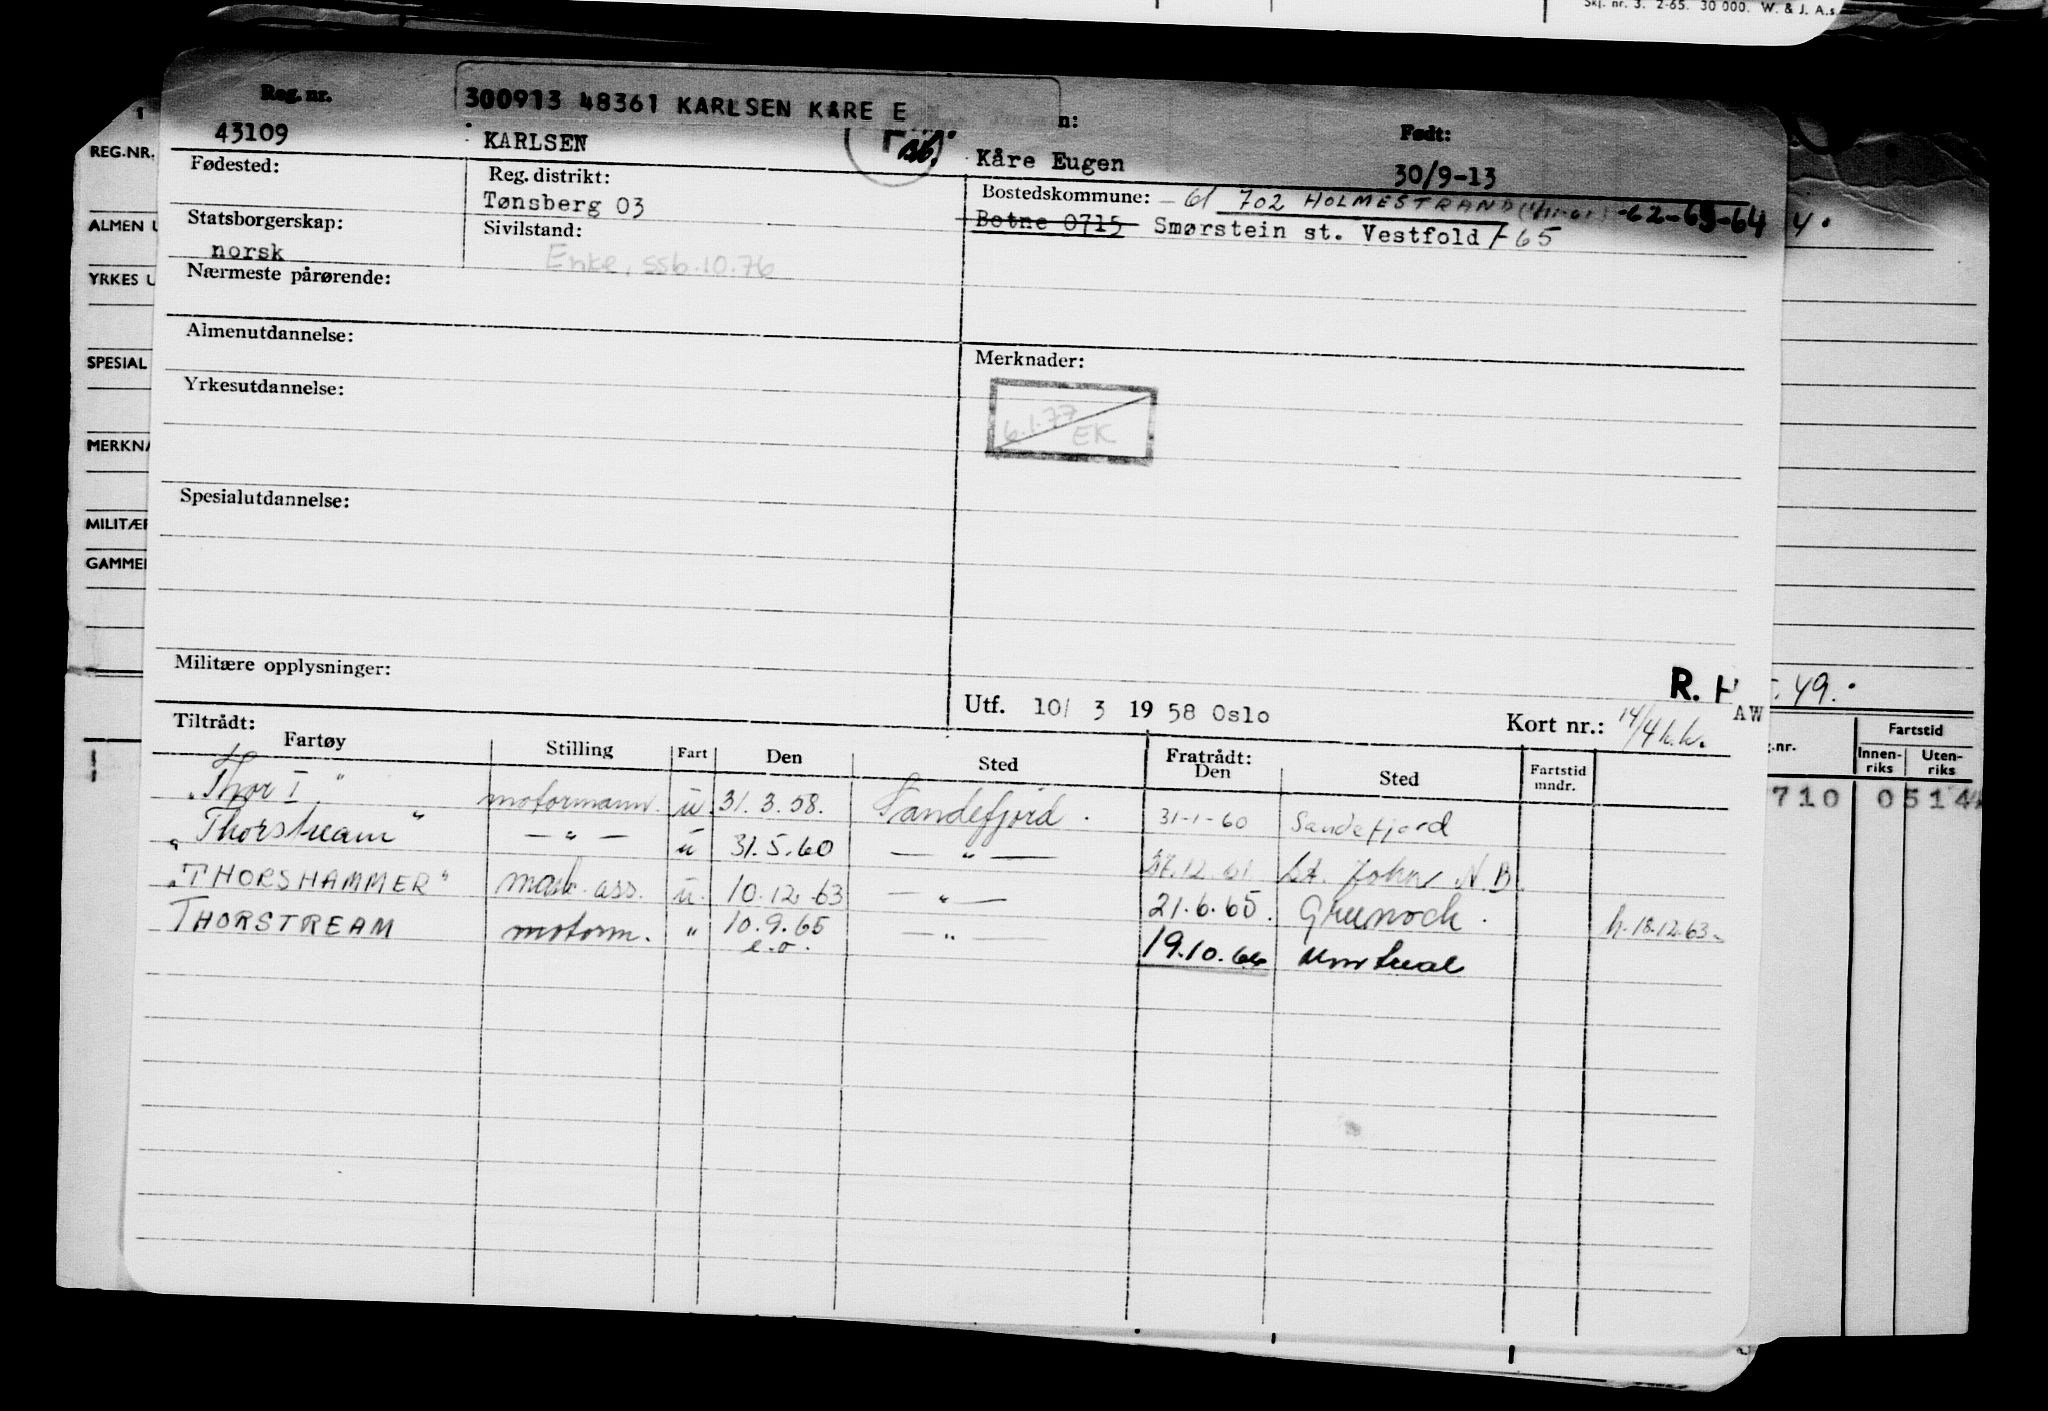 Skj. nr. 3. 2-65. 30 000. W. & J. A.s
Reg. nr. 300913 48361 KARLSEN KARE E n: Født:
43109 KARLSEN Kåre Eugen 30/9-13
REG.NR. Fødested: Reg. distrikt: Bostedskommune: - 61 702 HOLMESTRAND -62-63-64
Tønsberg 03 Botne 0715 Smørstein st. Vestfold /-65
ALMEN U Statsborgerskap: Sivilstand:
norsk Enke, ssb.10.76
YRKES U Nærmeste pårørende:
Almenutdannelse:
SPESIAL Merknader:
Yrkesutdannelse:
6.1.77 EK
MERKNA
Spesialutdannelse:
MILITÆR
GAMMEL
Militære opplysninger: R. H 49.
Utf. 10/ 3 19 58 Oslo Kort nr.: 14/4 k.k. AW
Tiltrådt: Fratrådt: Fartstid
Fartøy Stilling Fart Den Sted Den Sted Fartstid mndr. g.nr. Innen-riks Uten-riks
"Thor I" motormann. u 31.3.58. Sandefjord. 31-1-60 Sandefjord 710 0514
"Thorstream" — " — u 31.5.60 — " — 12.61 St. John N.B.
"THORSHAMMER" mask. ass. u. 10.12.63 — " — 21.6.65. Greenock. h.18.12.63.
THORSTREAM motorm. " 10.9.65 — " — 19.10.66 Montreal
e.o.